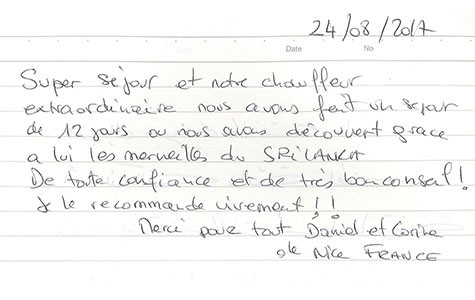 24/08/2017
Date No
Super séjour et notre chauffeur
extraordinaire nous avons fait un séjour
de 12 jours ou nous avons découvert grace
a lui les merveilles du SRILANKA
De toute confiance et de très bon conseil !
Je le recommande vivement !!
Merci pour tout Daniel et Corine
de Nice FRANCE